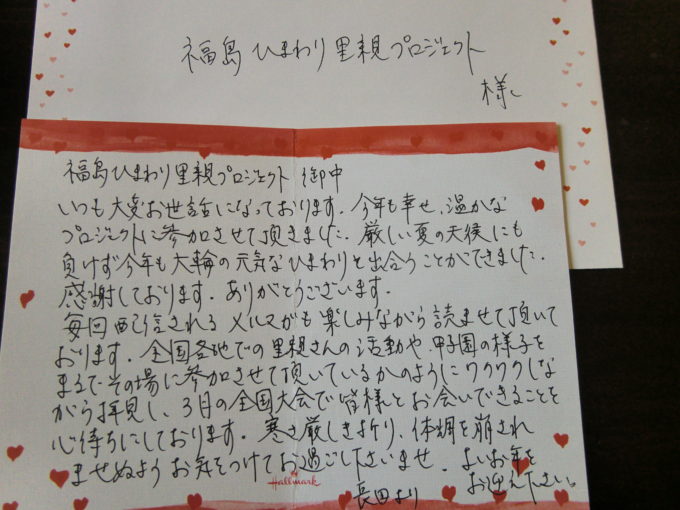 福島ひまわり里親プロジェクト
様
福島ひまわり里親プロジェクト 御中
いつも大変お世話になっております。今年も幸せ、温かな
プロジェクトに参加させて頂きました。厳しい夏の天候にも
負けず今年も大輪の元気なひまわりと出会うことができました。
感謝しております。ありがとうございます。
毎回配信されるメルマガも楽しみながら読ませて頂いて
おります。全国各地での里親さんの活動や、甲子園の様子を
まるでその場に参加させて頂いているかのようにワクワクしな
がら拝見し、3月の全国大会で皆様とお会いできることを
心待ちにしております。寒さ厳しき折り、体調を崩され
ませぬようお気をつけてお過ごし下さいませ。よいお年を
お迎え下さい。
Hallmark
長田より